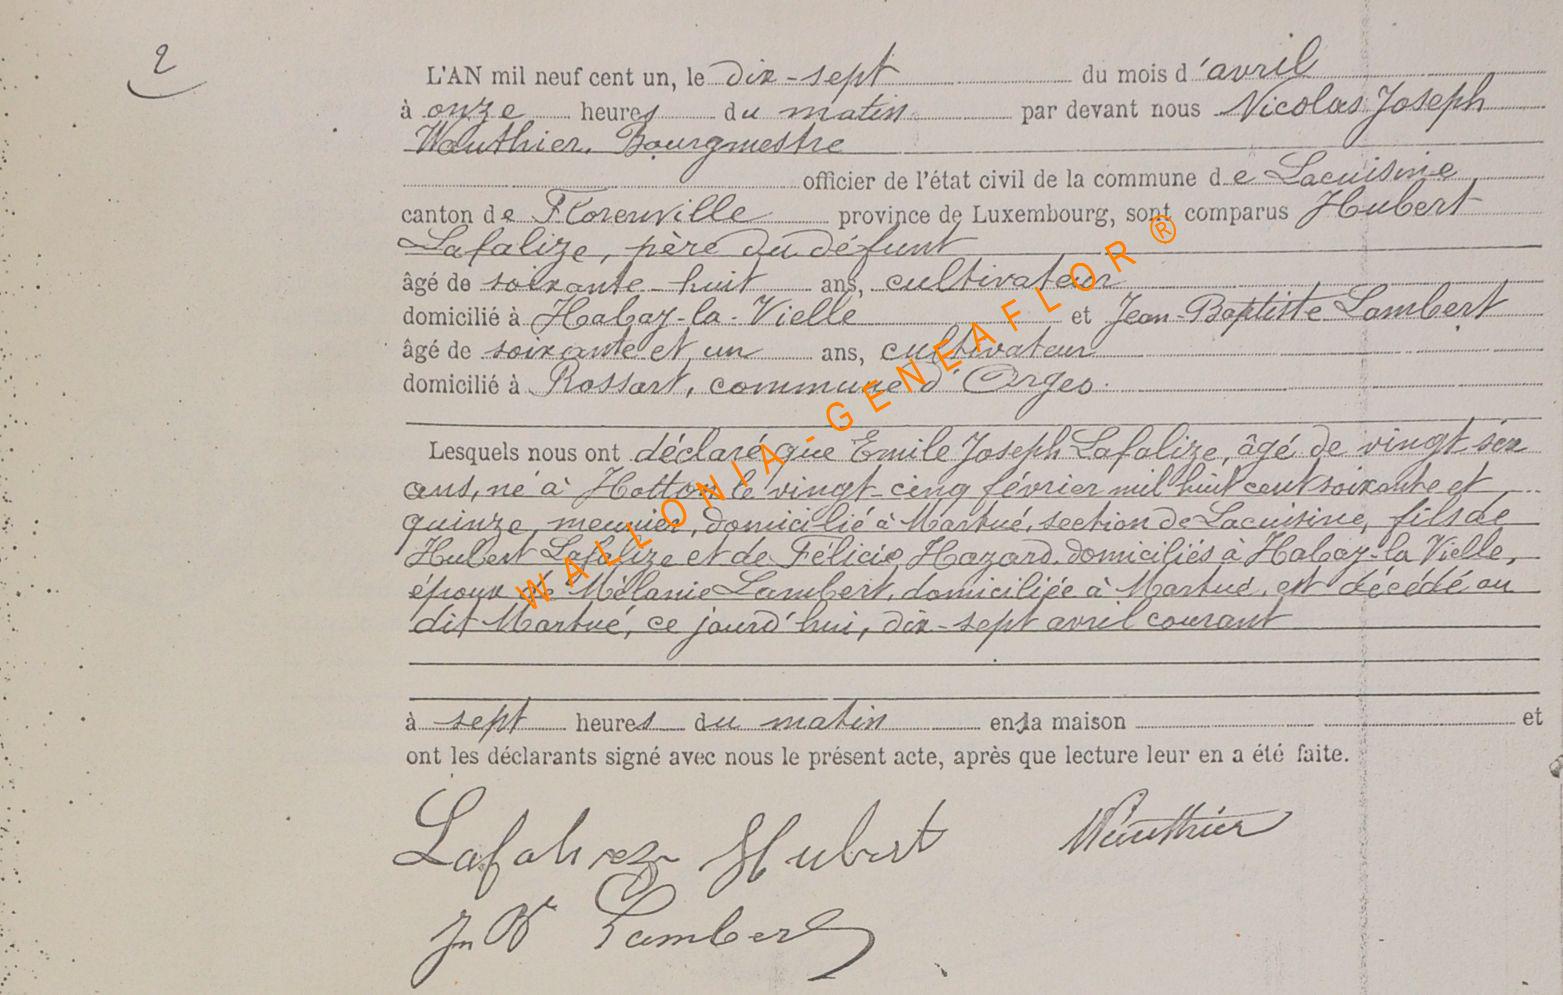 2
L'AN mil neuf cent un, le dix-sept du mois d'avril
à onze heures du matin par devant nous Nicolas Joseph
Wauthier, Bourgmestre
officier de l'état civil de la commune de Lacuisine
canton de Florenville province de Luxembourg, sont comparus Hubert
Lafalize, père du défunt
âgé de soixante-huit ans, cultivateur
domicilié à Habay-la-Vielle et Jean-Baptiste Lambert
âgé de soixante et un ans, cultivateur
domicilié à Rossart, commune d'Orgeo.
Lesquels nous ont déclaré que Emile Joseph Lafalize, âgé de vingt six
ans, né à Hotton le vingt-cinq février mil huit cent soixante et
quinze, meunier, domicilié à Martué, section de Lacuisine, fils de
Hubert Lafalize et de Félicie Hazard, domiciliés à Habay-la Vielle,
époux de Mélanie Lambert, domiciliée à Martué, est décédé au
dit Martué, ce jourd'hui, dix-sept avril courant
à sept heures du matin en sa maison et
ont les déclarants signé avec nous le présent acte, après que lecture leur en a été faite.
Lafalize Hubert Wauthier
Jn Bte Lambert
WALLONIA-GENEAFLOR ®